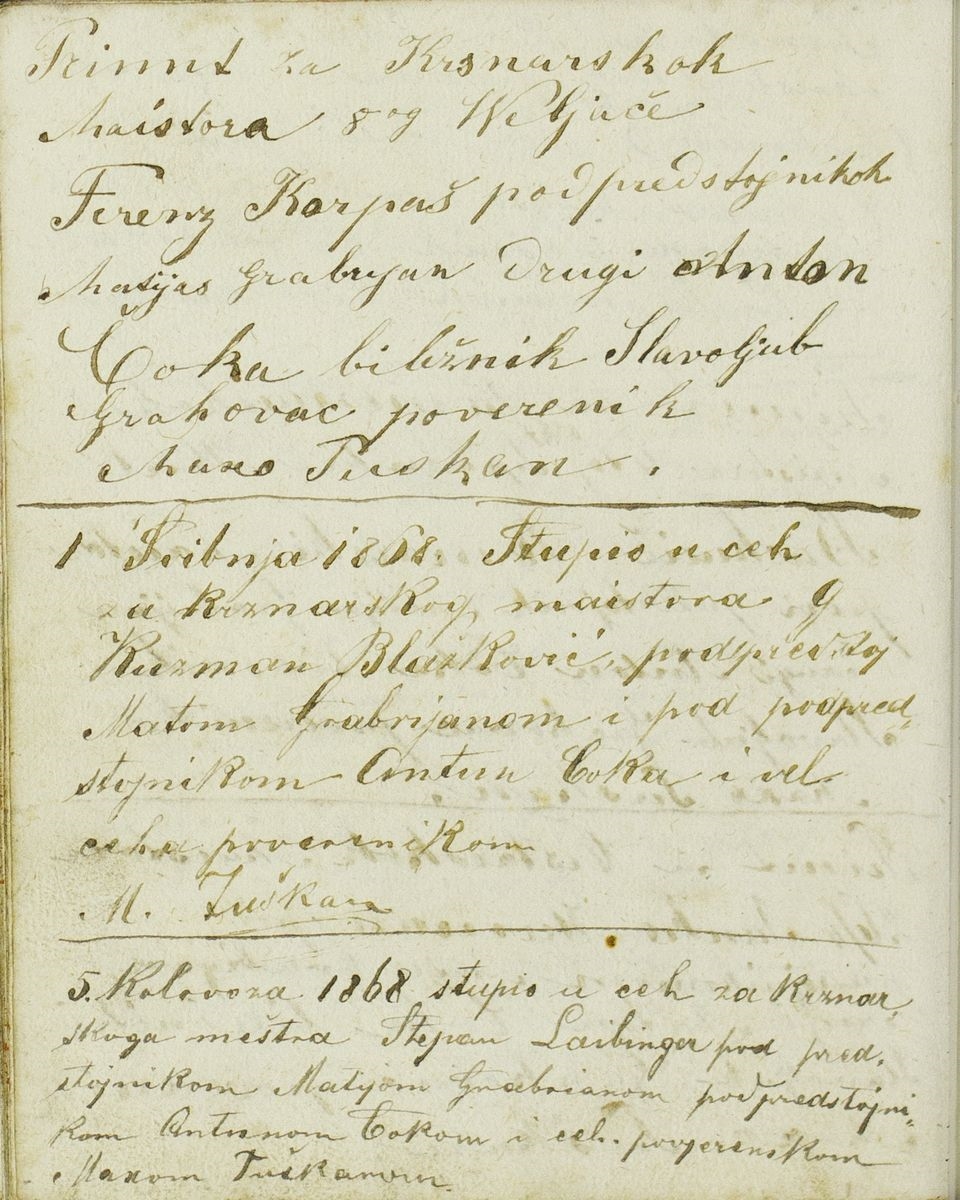 Primnt za Krsnarskok
Maistora 8og Weljače
Ferenz Korpaš podpredstojnikoh
Matijas Grabryan drugi Anton
Coka bilžnik Slavoljub
Grahovac poverenik
Maxo Tuskan.
1 Sribnja 1868. Stupio u ceh
za krznarskog maistora G
Kuzman Blažković, podpredstoj
Matom Grabrijanom i pod podpred-
stojnikom Antun Coka i vel
ceha poverenikom
M. Tuškan
5. Kolovoza 1868 stupio u ceh za krznar,
skoga meštra Stepan Laibinger pod pred,
stojnikom Matijom Grabrianom podpredstojni,
kom Antunom Cokom i ceh. povjerenikom
Maxom Tuškanom.